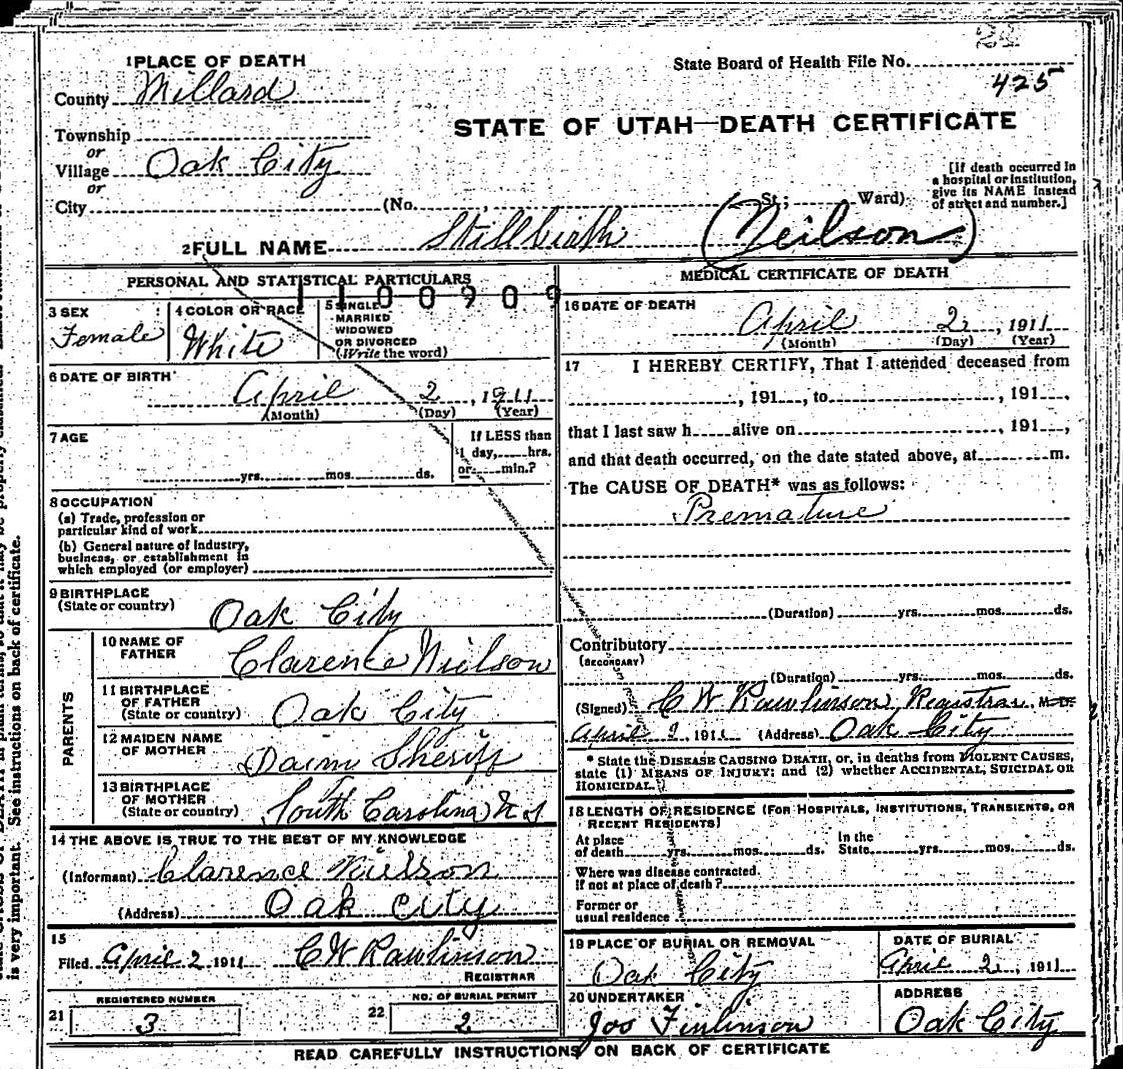 State Board of Health File No.
425
1 PLACE OF DEATH
County Millard
STATE OF UTAH—DEATH CERTIFICATE
Township
or
Village Oak City
or
City (No. , St.; Ward)
[If death occurred in
a hospital or institution,
give its NAME instead
of street and number.]
2 FULL NAME Stillbirth (Neilson)
PERSONAL AND STATISTICAL PARTICULARS
1100909
3 SEX
Female
4 COLOR OR RACE
White
5 SINGLE
MARRIED
WIDOWED
OR DIVORCED
(Write the word)
6 DATE OF BIRTH
April 2, 1911
(Month) (Day) (Year)
7 AGE
yrs. mos. ds.
If LESS than
1 day, hrs.
or min.?
8 OCCUPATION
(a) Trade, profession or
particular kind of work
(b) General nature of industry,
business, or establishment in
which employed (or employer)
9 BIRTHPLACE
(State or country) Oak City
PARENTS
10 NAME OF
FATHER Clarence Nielson
11 BIRTHPLACE
OF FATHER
(State or country) Oak City
12 MAIDEN NAME
OF MOTHER Sheriff
13 BIRTHPLACE
OF MOTHER
(State or country) South Carolina
14 THE ABOVE IS TRUE TO THE BEST OF MY KNOWLEDGE
(Informant) Clarence Nielson
(Address) Oak City
15
Filed April 2 1911 C W Rawlinson
REGISTRAR
21 REGISTERED NUMBER
3
22 NO. OF BURIAL PERMIT
2
MEDICAL CERTIFICATE OF DEATH
16 DATE OF DEATH
April 2, 1911
(Month) (Day) (Year)
17 I HEREBY CERTIFY, That I attended deceased from
, 191 , to , 191 ,
that I last saw h alive on , 191 ,
and that death occurred, on the date stated above, at m.
The CAUSE OF DEATH* was as follows:
Premature
(Duration) yrs. mos. ds.
Contributory
(SECONDARY)
(Duration) yrs. mos. ds.
(Signed) C W Rawlinson, Registrar M.D.
April 1911 (Address) Oak City
* State the DISEASE CAUSING DEATH, or, in deaths from VIOLENT CAUSES,
state (1) MEANS OF INJURY; and (2) whether ACCIDENTAL, SUICIDAL OR
HOMICIDAL.
18 LENGTH OF RESIDENCE (FOR HOSPITALS, INSTITUTIONS, TRANSIENTS, OR
RECENT RESIDENTS)
At place
of death yrs. mos. ds.
In the
State yrs. mos. ds.
Where was disease contracted.
If not at place of death?
Former or
usual residence
19 PLACE OF BURIAL OR REMOVAL
Oak City
DATE OF BURIAL
April 2, 1911
20 UNDERTAKER
Jos Finlinson
ADDRESS
Oak City
READ CAREFULLY INSTRUCTIONS ON BACK OF CERTIFICATE
is very important. See instructions on back of certificate.